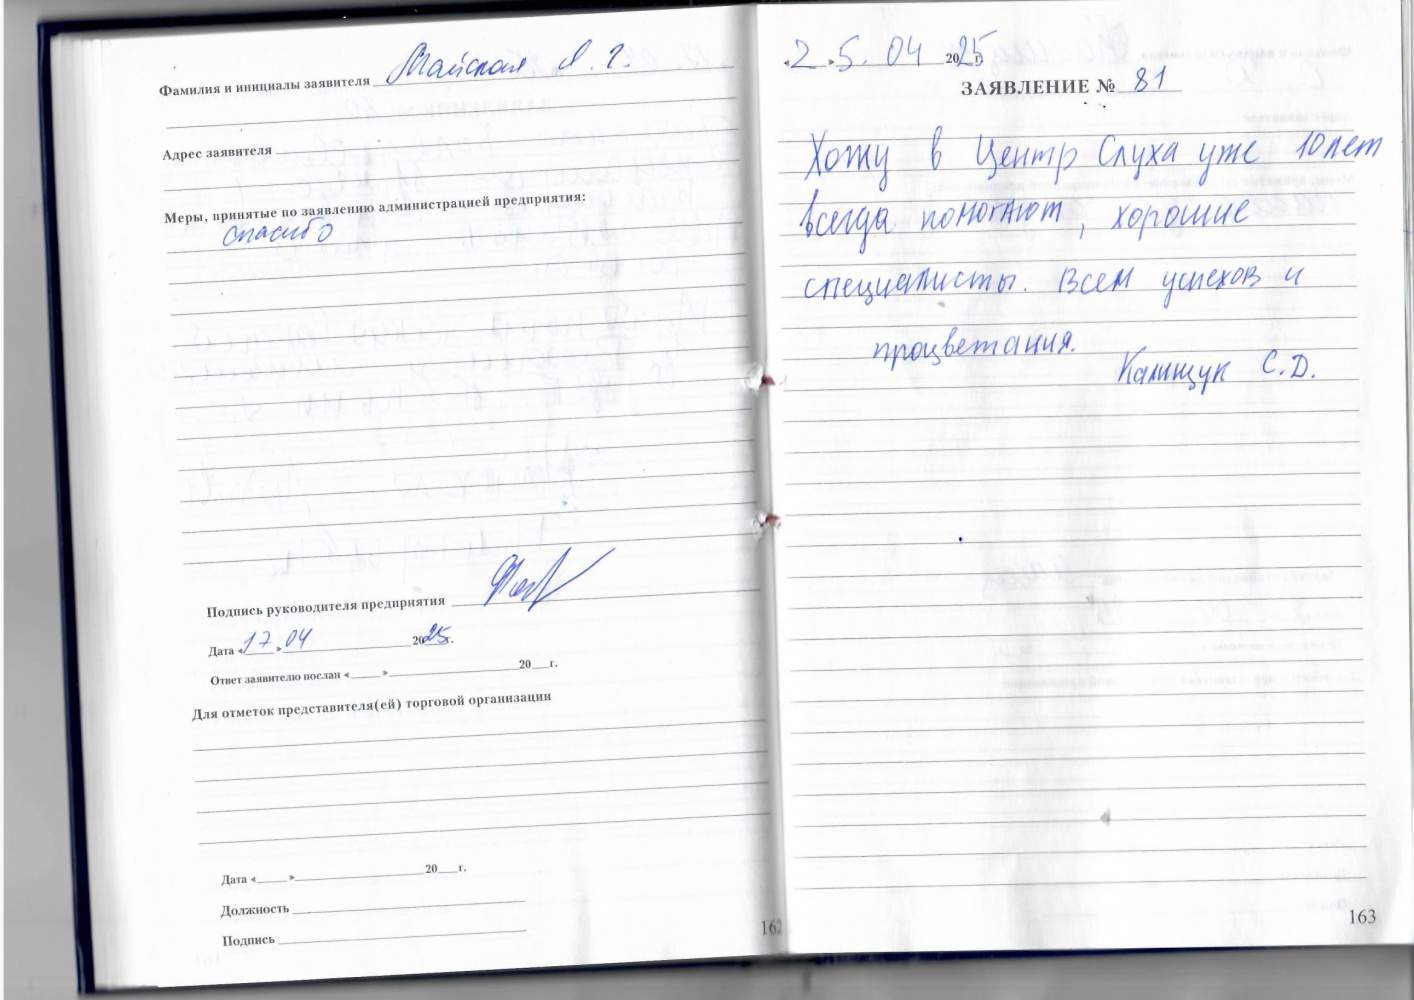 Фамилия и инициалы заявителя Майская Л. Г.
Адрес заявителя
Меры, принятые по заявлению администрацией предприятия:
спасибо
Подпись руководителя предприятия
Дата «17» 04 2025г.
Ответ заявителю послан « » 20 г.
Для отметок представителя(ей) торговой организации
Дата « » 20 г.
Должность
Подпись
162
«2»5. 04 2025г.
ЗАЯВЛЕНИЕ № 81
Хожу в Центр Слуха уже 10 лет
всегда помогают, хорошие
специалисты. Всем успехов и
процветания.
Калищук С.Д.
163